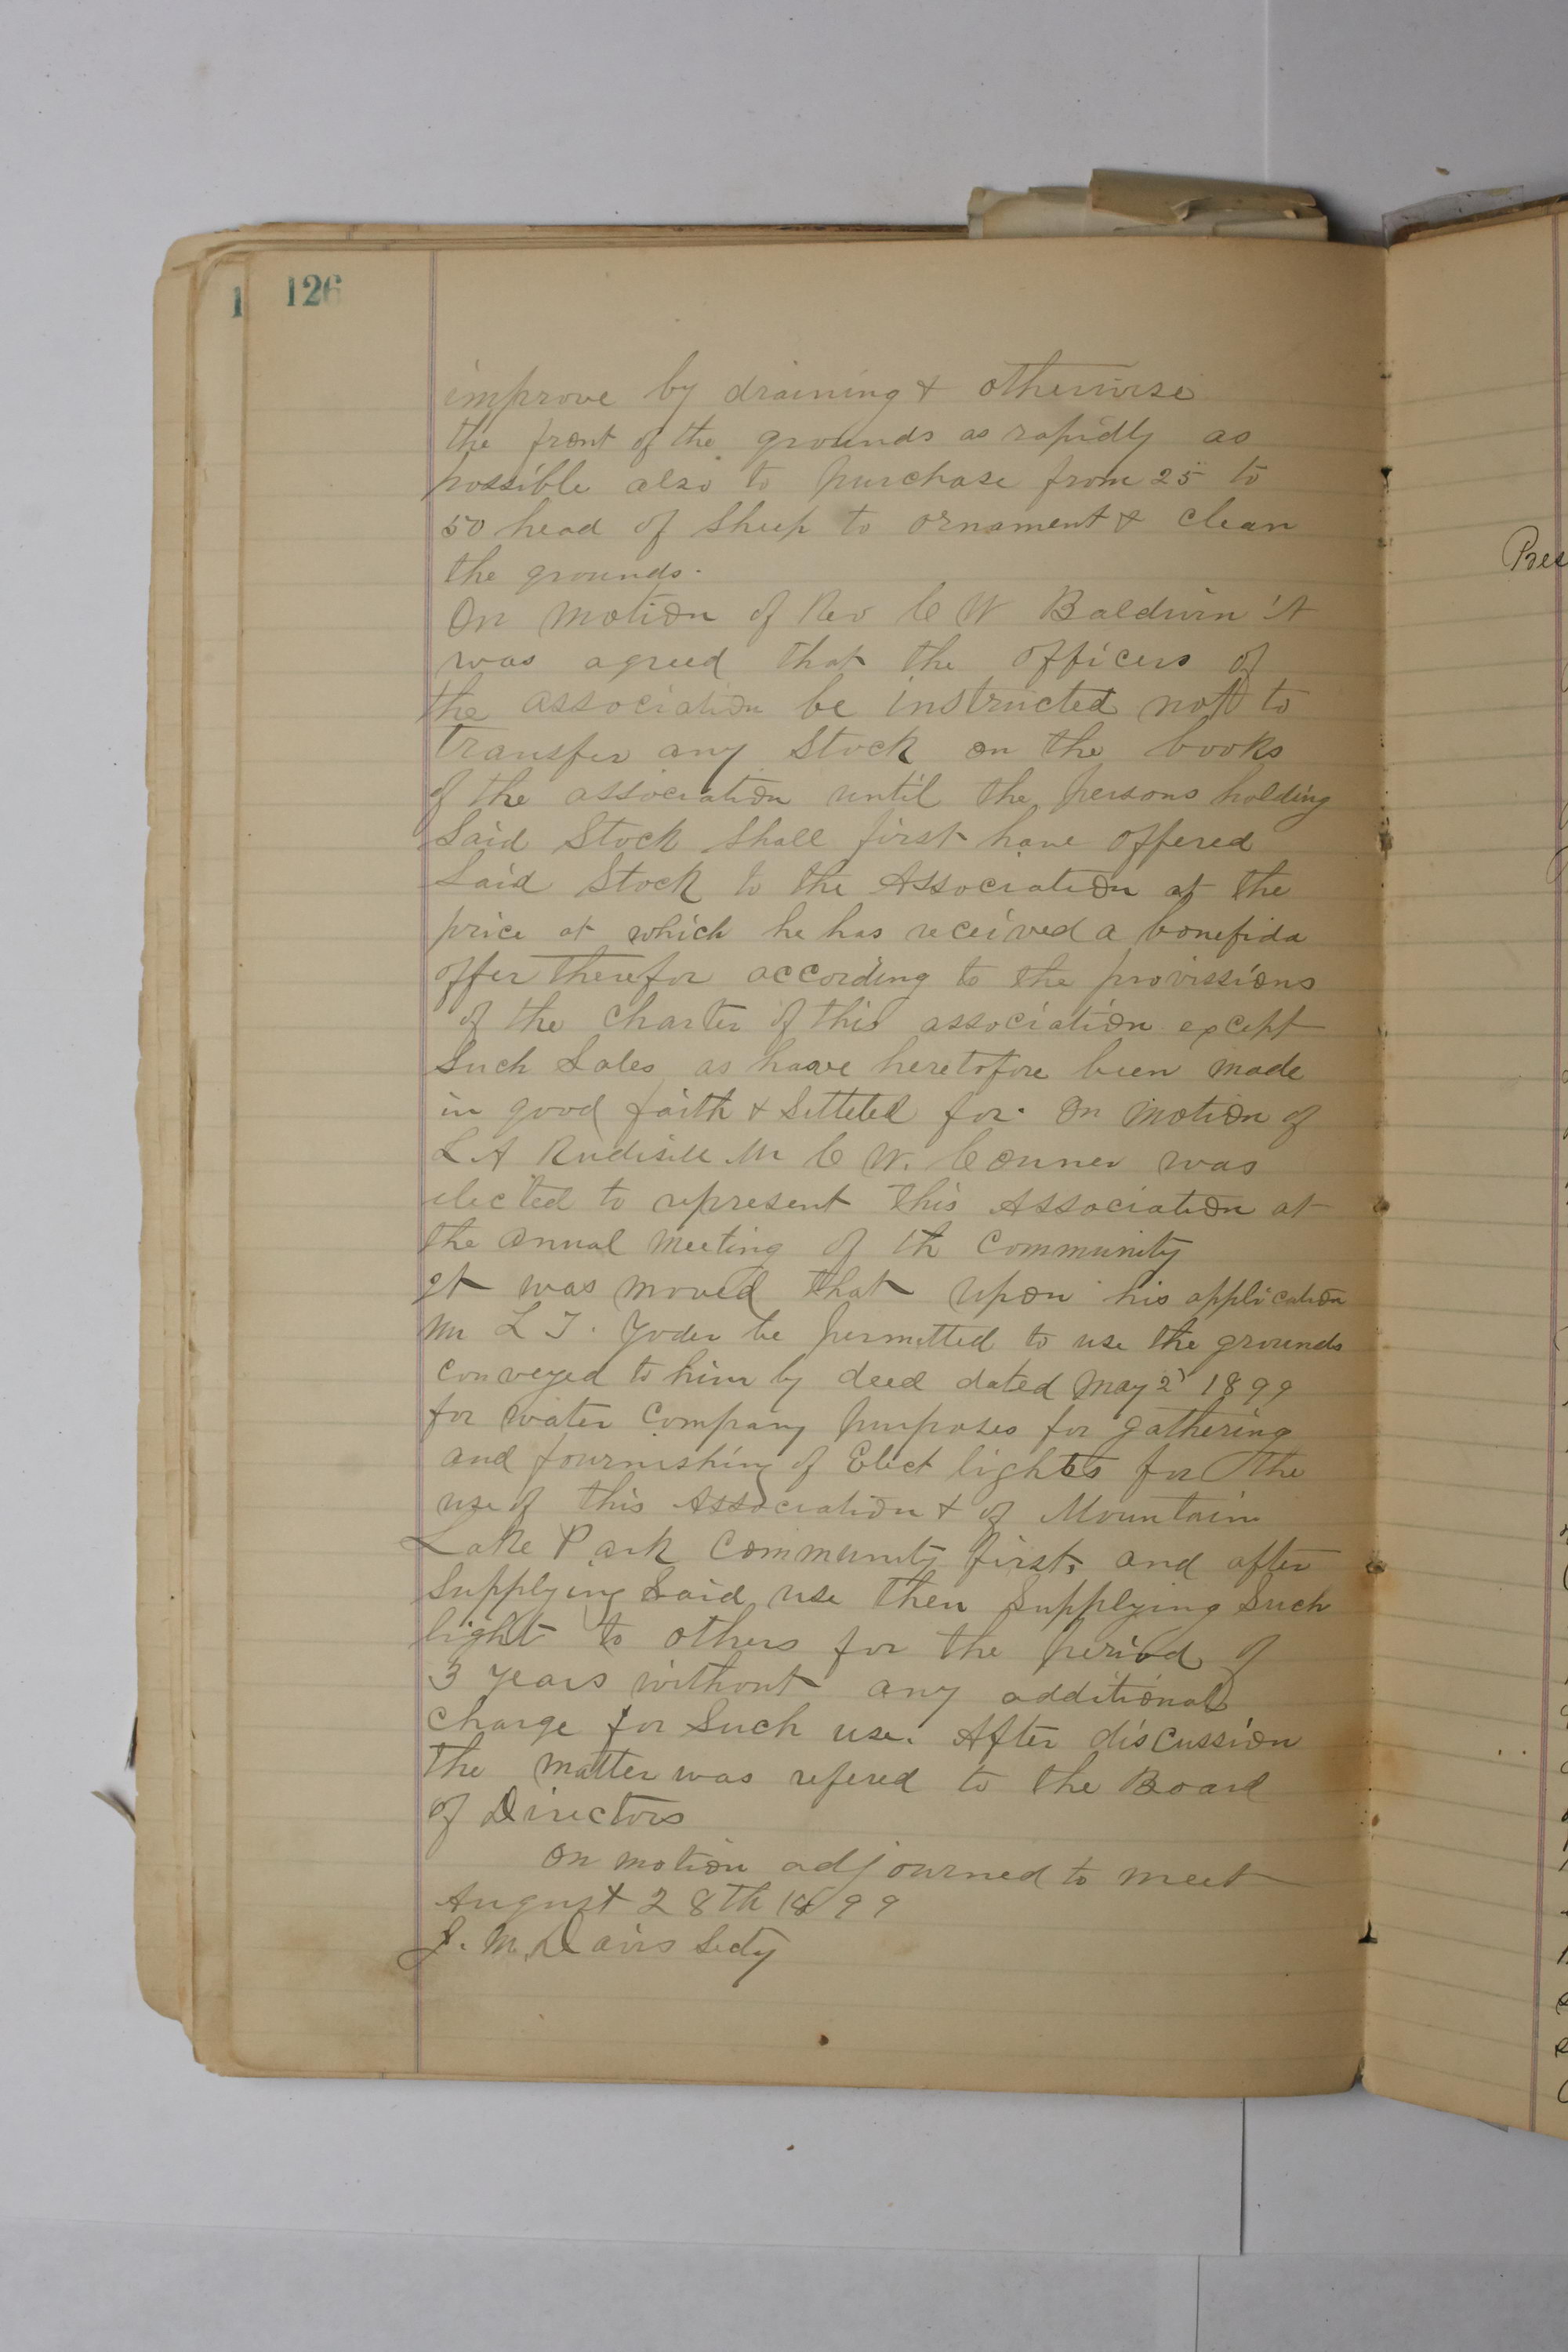 126
improve by draining & otherwise
the front of the grounds as rapidly as
possible also to purchase from 25 to
50 head of Sheep to ornament & clean
the grounds.
On motion of Rev C W Baldwin it
was agreed that the officers of
the association be instructed not to
transfer any Stock on the books
of the association until the persons holding
Said Stock Shall first have offered
Said Stock to the Association at the
price at which he has received a bonefida
offer therefor according to the provissions
of the charter of this association except
Such Sales as have heretofore been made
in good faith & Setteled for. On motion of
L A Rudisill Mr C W. Conner was
elected to represent this Association at
the annual meeting of th Community
It was moved that upon his application
Mr L T. Yoder be permitted to use the grounds
conveyed to him by deed dated May 2 1899
for water Company purposes for gathering
and fournishing of Elect lights for the
use of this Association & of Mountain
Lake Park Community first, and after
Supplying Said use then Supplying Such
light to others for the period of
3 years without any additional
charge for Such use. After discussion
the matter was refered to the Board
of Directors
On motion adjourned to meet
August 28th 1899
J. M. Davis Secty
Pres